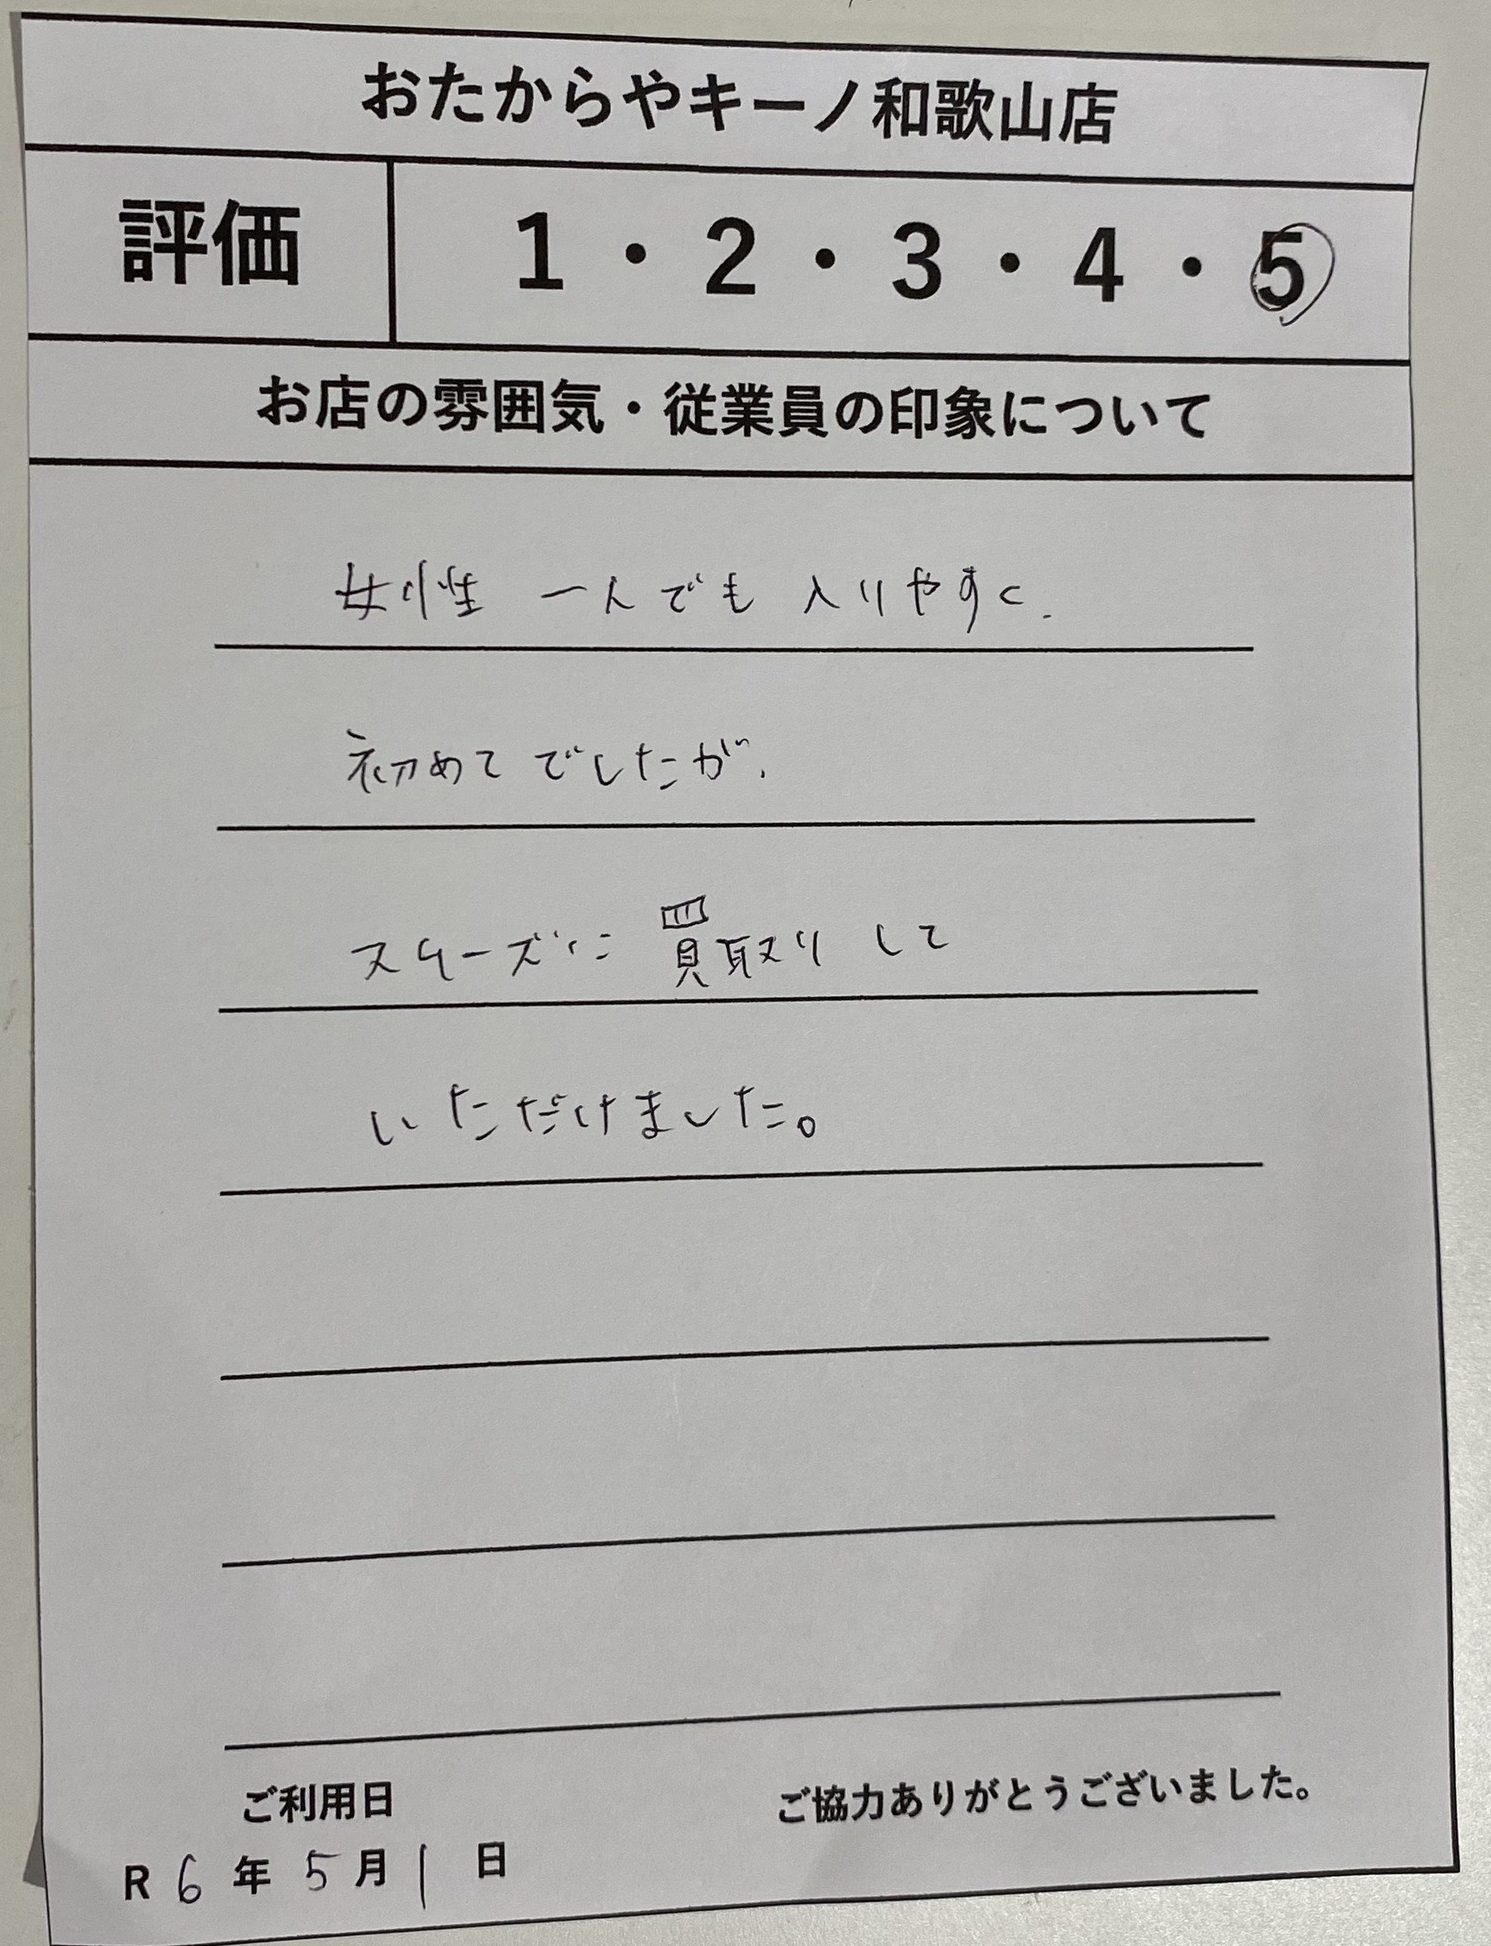 おたからやキーノ和歌山店
評価 1・2・3・4・5
お店の雰囲気・従業員の印象について
女性一人でも入りやすく、
初めてでしたが、
スムーズに買取りして
いただけました。
ご利用日 ご協力ありがとうございました。
R 6 年 5 月 1 日